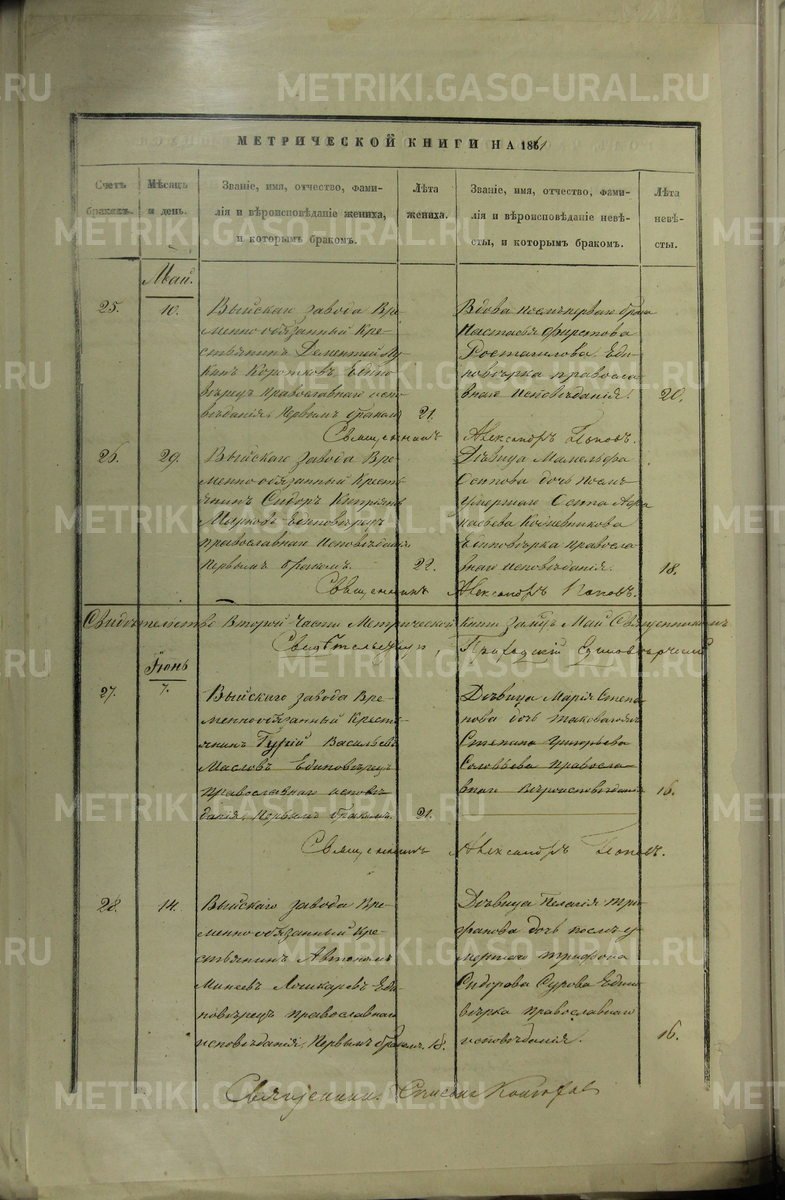 METRIKI.GASO-URAL.RU
МЕТРИЧЕСКОЙ КНИГИ НА 1861
Счетъ браковъ.
Мѣсяцъ и день.
Званіе, имя, отчество, фами-
лія и вѣроисповѣданіе жениха,
и которымъ бракомъ.
Лѣта жениха.
Званіе, имя, отчество, фами-
лія и вѣроисповѣданіе невѣ-
сты, и которымъ бракомъ.
Лѣта невѣ-
сты.
Май.
25.
10.
Выйскаго завода Вре-
меннообязанный Кре-
стьянинъ Дементей
Коротковъ Едино
вѣрецъ Православнаго испо
вѣданія, Первымъ бракомъ
21.
Вдова послѣ перваго брака
Настасья
Еди
новѣрка правосла
внаго исповѣданія.
20.
Священникъ Александръ Поповъ.
26.
29.
Выйскаго завода Вре-
меннообязанный Кресть
янинъ Сидоръ
Единовѣрецъ
православнаго исповѣданія
Первымъ бракомъ.
22.
Дѣвица
Осипова дочь послѣ
умершаго Осипа
Кожевникова
Единовѣрка правосла
внаго исповѣданія.
18.
Священникъ Александръ Поповъ.
Свидѣтельство Второй Части Метрической Книги за Мѣц Май Священникомъ
Свидѣтельствую,
Іюнь
27.
7.
Выйскаго завода Вре-
меннообязанный Кресть
янинъ Гурій Васильевъ
Масловъ Единовѣрецъ
Православнаго исповѣ
данія, Первымъ бракомъ.
21.
Дѣвица Марія Степа
нова дочь таковаго же
Степана Григорьева
Соловьева Правосла-
внаго Вѣроисповѣданія
16.
Священникъ Александръ Поповъ.
28.
14.
Выйскаго завода Вре-
меннообязанный Кре-
стьянинъ Автономъ
Минеевъ Еди
новѣрецъ православнаго
исповѣданія, Первымъ бракомъ.
18.
Дѣвица Пелагія Три
фанова дочь послѣ у
мершаго Трифона
Сидорова Сурова Едино
вѣрка православнаго
исповѣданія.
16.
Священникъ